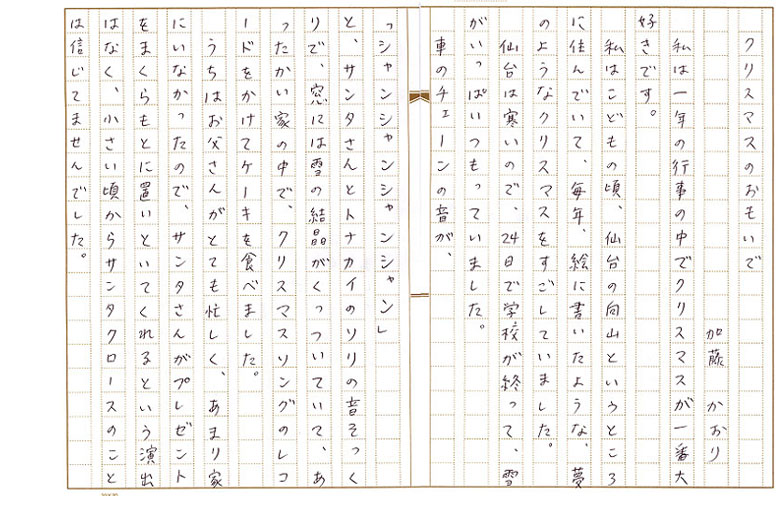 クリスマスのおもいで
加藤 かおり
私は一年の行事の中でクリスマスが一番大
好きです。
私はこどもの頃、仙台の向山というところ
に住んでいて、毎年、絵に書いたような、夢
のようなクリスマスをすごしていました。
仙台は寒いので、24日で学校が終って、雪
がいっぱいつもっていました。
車のチェーンの音が、
「シャンシャンシャンシャン」
と、サンタさんとトナカイのソリの音そっく
りで、窓には雪の結晶がくっついていて、あ
ったかい家の中で、クリスマスソングのレコ
ードをかけてケーキを食べました。
うちはお父さんがとても忙しく、あまり家
にいなかったので、サンタさんがプレゼント
をまくらもとに置いといてくれるという演出
はなく、小さい頃からサンタクロースのこと
は信じてませんでした。